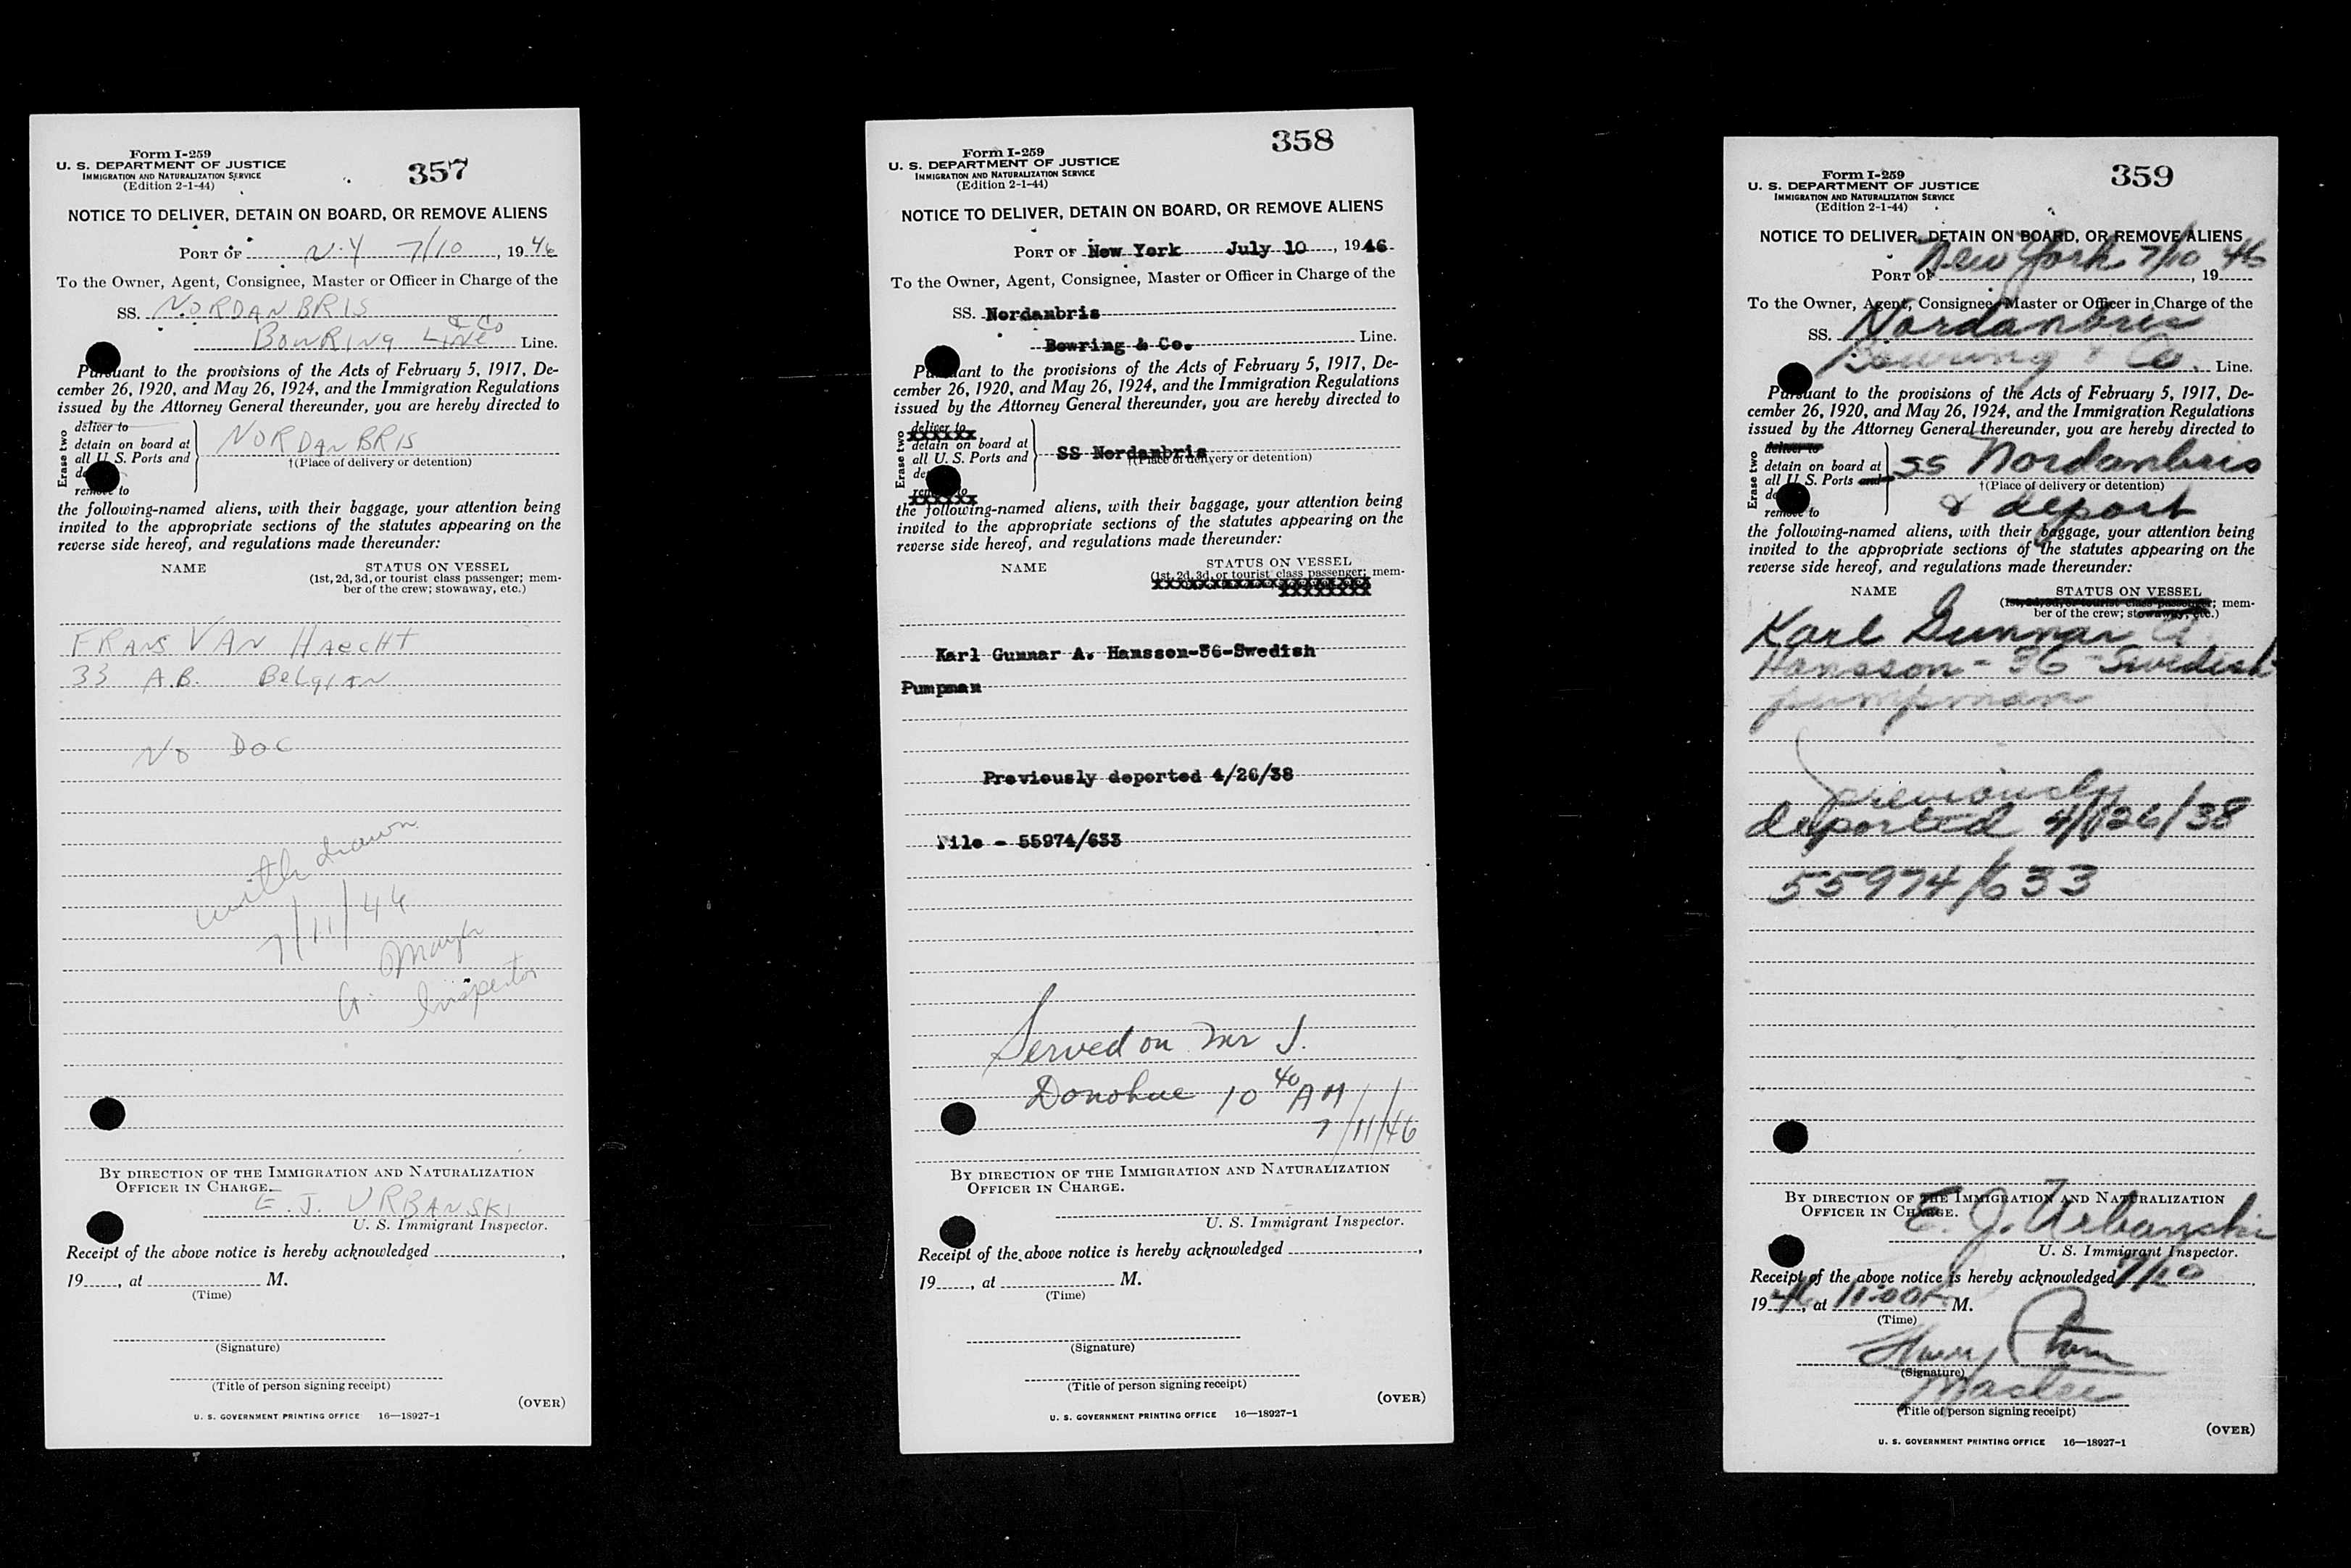 Form I-259
U. S. DEPARTMENT OF JUSTICE
IMMIGRATION AND NATURALIZATION SERVICE
(Edition 2-1-44)
357
NOTICE TO DELIVER, DETAIN ON BOARD, OR REMOVE ALIENS
PORT OF N.Y 7/10, 1946
To the Owner, Agent, Consignee, Master or Officer in Charge of the
SS. NORDANBRIS
& Co
BOWRING LINE Line.
Pursuant to the provisions of the Acts of February 5, 1917, De-
cember 26, 1920, and May 26, 1924, and the Immigration Regulations
issued by the Attorney General thereunder, you are hereby directed to
Erase two
deliver to
detain on board at
all U. S. Ports and
de
remove to
NORDANBRIS
†(Place of delivery or detention)
the following-named aliens, with their baggage, your attention being
invited to the appropriate sections of the statutes appearing on the
reverse side hereof, and regulations made thereunder:
NAME STATUS ON VESSEL
(1st, 2d, 3d, or tourist class passenger; mem-
ber of the crew; stowaway, etc.)
FRANS VAN HAECHT
33 A.B. Belgian
No Doc
withdrawn
7/11/46
G. Mayer
Inspector
BY DIRECTION OF THE IMMIGRATION AND NATURALIZATION
OFFICER IN CHARGE.
E. J. URBANSKI
U. S. Immigrant Inspector.
Receipt of the above notice is hereby acknowledged ,
19 , at M.
(Time)
(Signature)
(Title of person signing receipt)
(OVER)
U. S. GOVERNMENT PRINTING OFFICE 16—18927-1
Form I-259
U. S. DEPARTMENT OF JUSTICE
IMMIGRATION AND NATURALIZATION SERVICE
(Edition 2-1-44)
358
NOTICE TO DELIVER, DETAIN ON BOARD, OR REMOVE ALIENS
PORT OF New York July 10, 1946
To the Owner, Agent, Consignee, Master or Officer in Charge of the
SS. Nordanbris
Bowring & Co. Line.
Pursuant to the provisions of the Acts of February 5, 1917, De-
cember 26, 1920, and May 26, 1924, and the Immigration Regulations
issued by the Attorney General thereunder, you are hereby directed to
Erase two
deliver to
detain on board at
all U. S. Ports and
de
remove to
SS Nordanbris
†(Place of delivery or detention)
the following-named aliens, with their baggage, your attention being
invited to the appropriate sections of the statutes appearing on the
reverse side hereof, and regulations made thereunder:
NAME STATUS ON VESSEL
(1st, 2d, 3d, or tourist class passenger; mem-
Karl Gunnar A. Hansson-36-Swedish
Pumpman
Previously deported 4/26/38
File - 55974/633
Served on Mr J.
Donohue 10 40 AM
7/11/46
BY DIRECTION OF THE IMMIGRATION AND NATURALIZATION
OFFICER IN CHARGE.
U. S. Immigrant Inspector.
Receipt of the above notice is hereby acknowledged ,
19 , at M.
(Time)
(Signature)
(Title of person signing receipt)
(OVER)
U. S. GOVERNMENT PRINTING OFFICE 16—18927-1
Form I-259
U. S. DEPARTMENT OF JUSTICE
IMMIGRATION AND NATURALIZATION SERVICE
(Edition 2-1-44)
359
NOTICE TO DELIVER, DETAIN ON BOARD, OR REMOVE ALIENS
PORT OF New York 7/10, 19 46
To the Owner, Agent, Consignee, Master or Officer in Charge of the
SS. Nordanbris
Bowring & Co. Line.
Pursuant to the provisions of the Acts of February 5, 1917, De-
cember 26, 1920, and May 26, 1924, and the Immigration Regulations
issued by the Attorney General thereunder, you are hereby directed to
Erase two
deliver to
detain on board at
all U. S. Ports and
de
remove to
SS Nordanbris
†(Place of delivery or detention)
& deport
the following-named aliens, with their baggage, your attention being
invited to the appropriate sections of the statutes appearing on the
reverse side hereof, and regulations made thereunder:
NAME STATUS ON VESSEL
(1st, 2d, 3d, or tourist class passenger; mem-
ber of the crew; stowaway, etc.)
Karl Gunnar A.
Hansson - 36 - Swedish
pumpman
previously
deported 4/26/38
55974/633
BY DIRECTION OF THE IMMIGRATION AND NATURALIZATION
OFFICER IN CHARGE.
E. J. Urbanski
U. S. Immigrant Inspector.
Receipt of the above notice is hereby acknowledged 7/10,
1946, at 11:00 M.
(Time)
Harry
(Signature)
Master
(Title of person signing receipt)
(OVER)
U. S. GOVERNMENT PRINTING OFFICE 16—18927-1